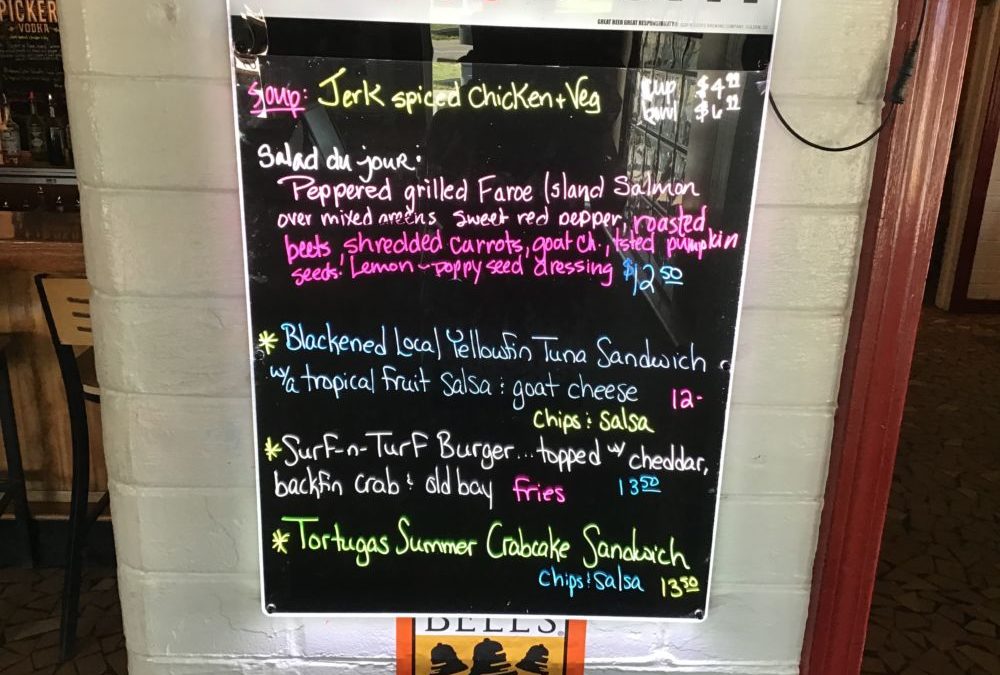 PICKER
VODKA
GREAT BEER GREAT RESPONSIBILITY
Soup: Jerk spiced Chicken + Veg
Cup $4.99
Bowl $6.99
Salad du jour:
Peppered grilled Faroe Island Salmon
over mixed greens, sweet red pepper, roasted
beets, shredded carrots, goat ch, tsted pumpkin
seeds! Lemon-poppy seed dressing $12.50
* Blackened Local Yellowfin Tuna Sandwich
w/a tropical fruit salsa & goat cheese 12-
chips & salsa
* Surf-n-Turf Burger...topped w/ cheddar,
backfin crab & old bay fries 13.50
* Tortugas Summer Crabcake Sandwich
chips & salsa 13.50
BELL'S